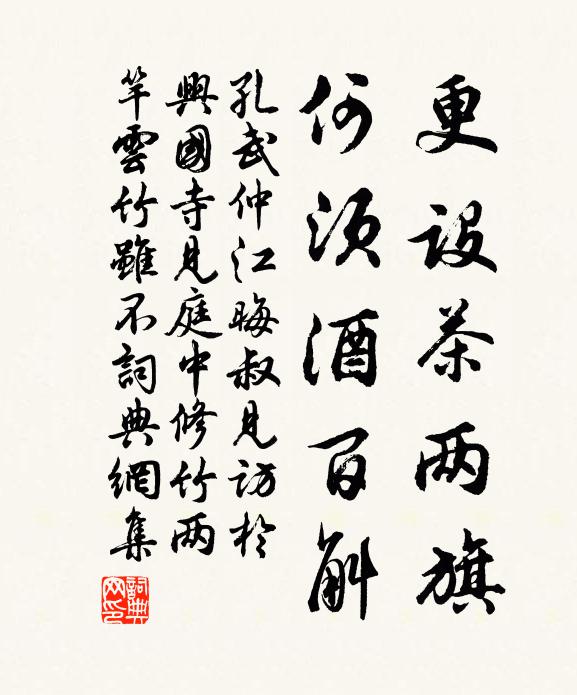 更設茶两旗
何須酒百斛
孔武仲江晦叔見訪於
興國寺見庭中修竹两
竿雲竹雖不詞典網集
詞典網印